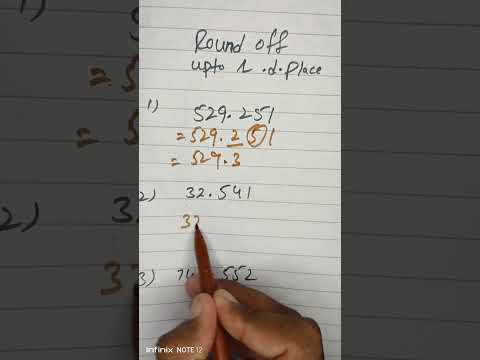 Round off
upto 1 .d.place
1) 529.251
= 529.251
= 529.3
2) 32.541
32
3) 552
Infinix NOTE 12